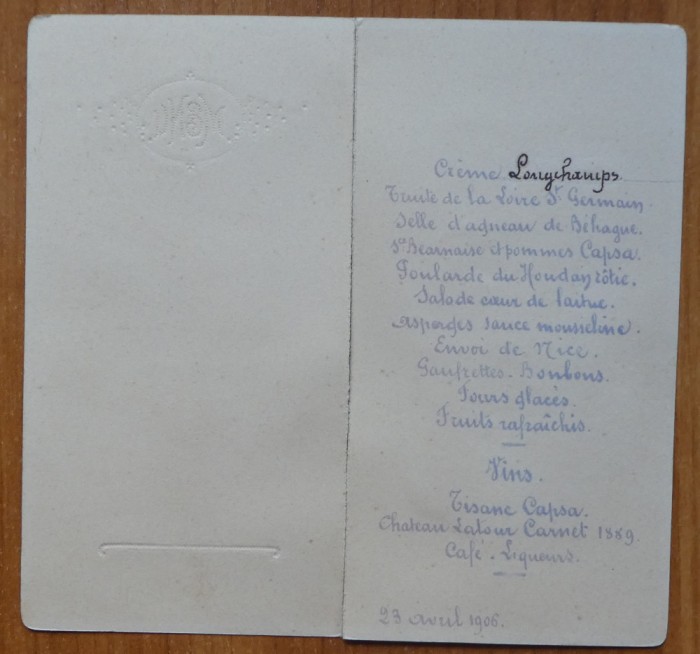 Crème Longchamps.
Truite de la Loire St Germain.
Selle d'agneau de Béhague.
Sce Béarnaise et pommes Capsa.
Poularde du Houdan rôtie.
Salade cœur de laitue.
Asperges sauce mousseline.
Envoi de Nice.
Gaufrettes. Bonbons.
Fours glacés.
Fruits rafraîchis.
Vins.
Tisane Capsa.
Chateau Latour Carnet 1889.
Café. Liqueurs.
23 avril 1906.